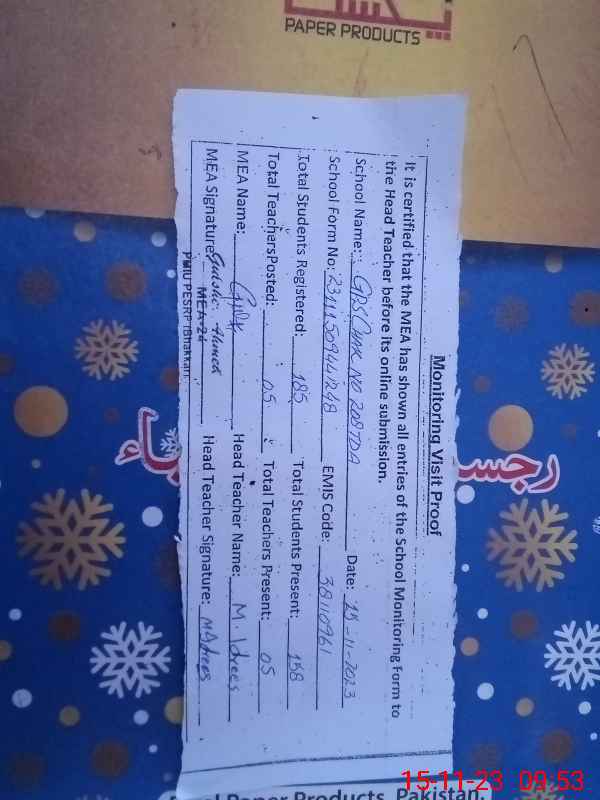 PAPER PRODUCTS
Monitoring Visit Proof
It is certified that the MEA has shown all entries of the School Monitoring Form to
the Head Teacher before its online submission.
School Name: GPS Chak No 208TDA Date: 15-11-2023
School Form No: EMIS Code: 38110961
Total Students Registered: 185 Total Students Present: 158
Total TeachersPosted: 05 Total Teachers Present: 05
MEA Name: Head Teacher Name: M. Idrees
MEA Signature: Head Teacher Signature: M Idrees
MEA-24
PMIU PESRP (Bhakkar)
Paper Products, Pakistan.
15-11-23 09:53